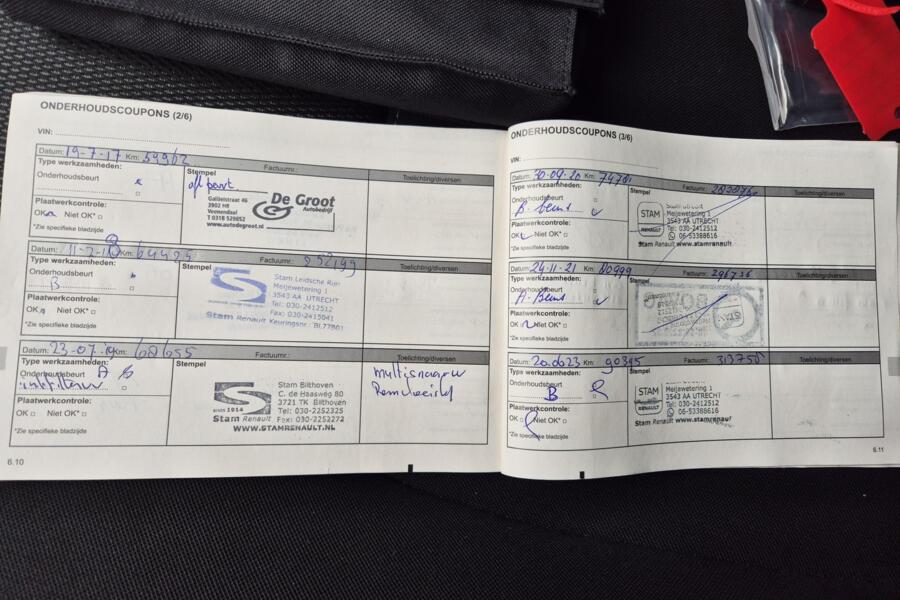 ONDERHOUDSCOUPONS (2/6)
VIN:
Datum: 19-7-17 Km: 59962
Factuurnr.:
Type werkzaamheden:
Onderhoudsbeurt
Plaatwerkcontrole:
OK Niet OK*
*Zie specifieke bladzijde
Stempel
Galileistraat 46
3902 HR
Veenendaal
T 0318 529852
www.autodegroot.nl
De Groot
Autobedrijf
Toelichting/diversen
Datum: 11-7-18 Km:
Factuurnr.:
Type werkzaamheden:
Onderhoudsbeurt
B
Plaatwerkcontrole:
OK Niet OK*
*Zie specifieke bladzijde
Stempel
Stam Leidsche Rijn
Meijewetering 1
3543 AA UTRECHT
Tel: 030-2412512
Fax: 030-2415041
Stam Renault Keuringsnr.:
Toelichting/diversen
Datum: 23-07-19 Km: 68655
Factuurnr.:
Type werkzaamheden:
Onderhoudsbeurt A
Plaatwerkcontrole:
OK Niet OK*
*Zie specifieke bladzijde
Stempel
SINDS 1914
Stam Renault
Stam Bilthoven
C. de Haasweg 80
3721 TK Bilthoven
Tel: 030-2252325
Fax: 030-2252272
WWW.STAMRENAULT.NL
Toelichting/diversen
Remvloeistof
6.10
ONDERHOUDSCOUPONS (3/6)
VIN:
Datum: 30-09-20 Km:
Factuurnr.:
Type werkzaamheden:
Onderhoudsbeurt
B-beurt
Plaatwerkcontrole:
OK Niet OK*
*Zie specifieke bladzijde
Stempel
STAM
RENAULT
Meijewetering 1
3543 AA UTRECHT
Tel: 030-2412512
06-53388616
Stam Renault www.stamrenault
Toelichting/diversen
Datum: 24-11-21 Km: 80999
Factuurnr.: 296736
Type werkzaamheden:
Onderhoudsbeurt
A-Beurt
Plaatwerkcontrole:
OK Niet OK*
*Zie specifieke bladzijde
Stempel
Toelichting/diversen
Datum: 20-06-23 Km: 90395
Factuurnr.: 313750
Type werkzaamheden:
Onderhoudsbeurt
B
Plaatwerkcontrole:
OK Niet OK*
*Zie specifieke bladzijde
Stempel
STAM
RENAULT
Meijewetering 1
3543 AA UTRECHT
Tel: 030-2412512
06-53388616
Stam Renault www.stamrenaul
Toelichting/diversen
6.11